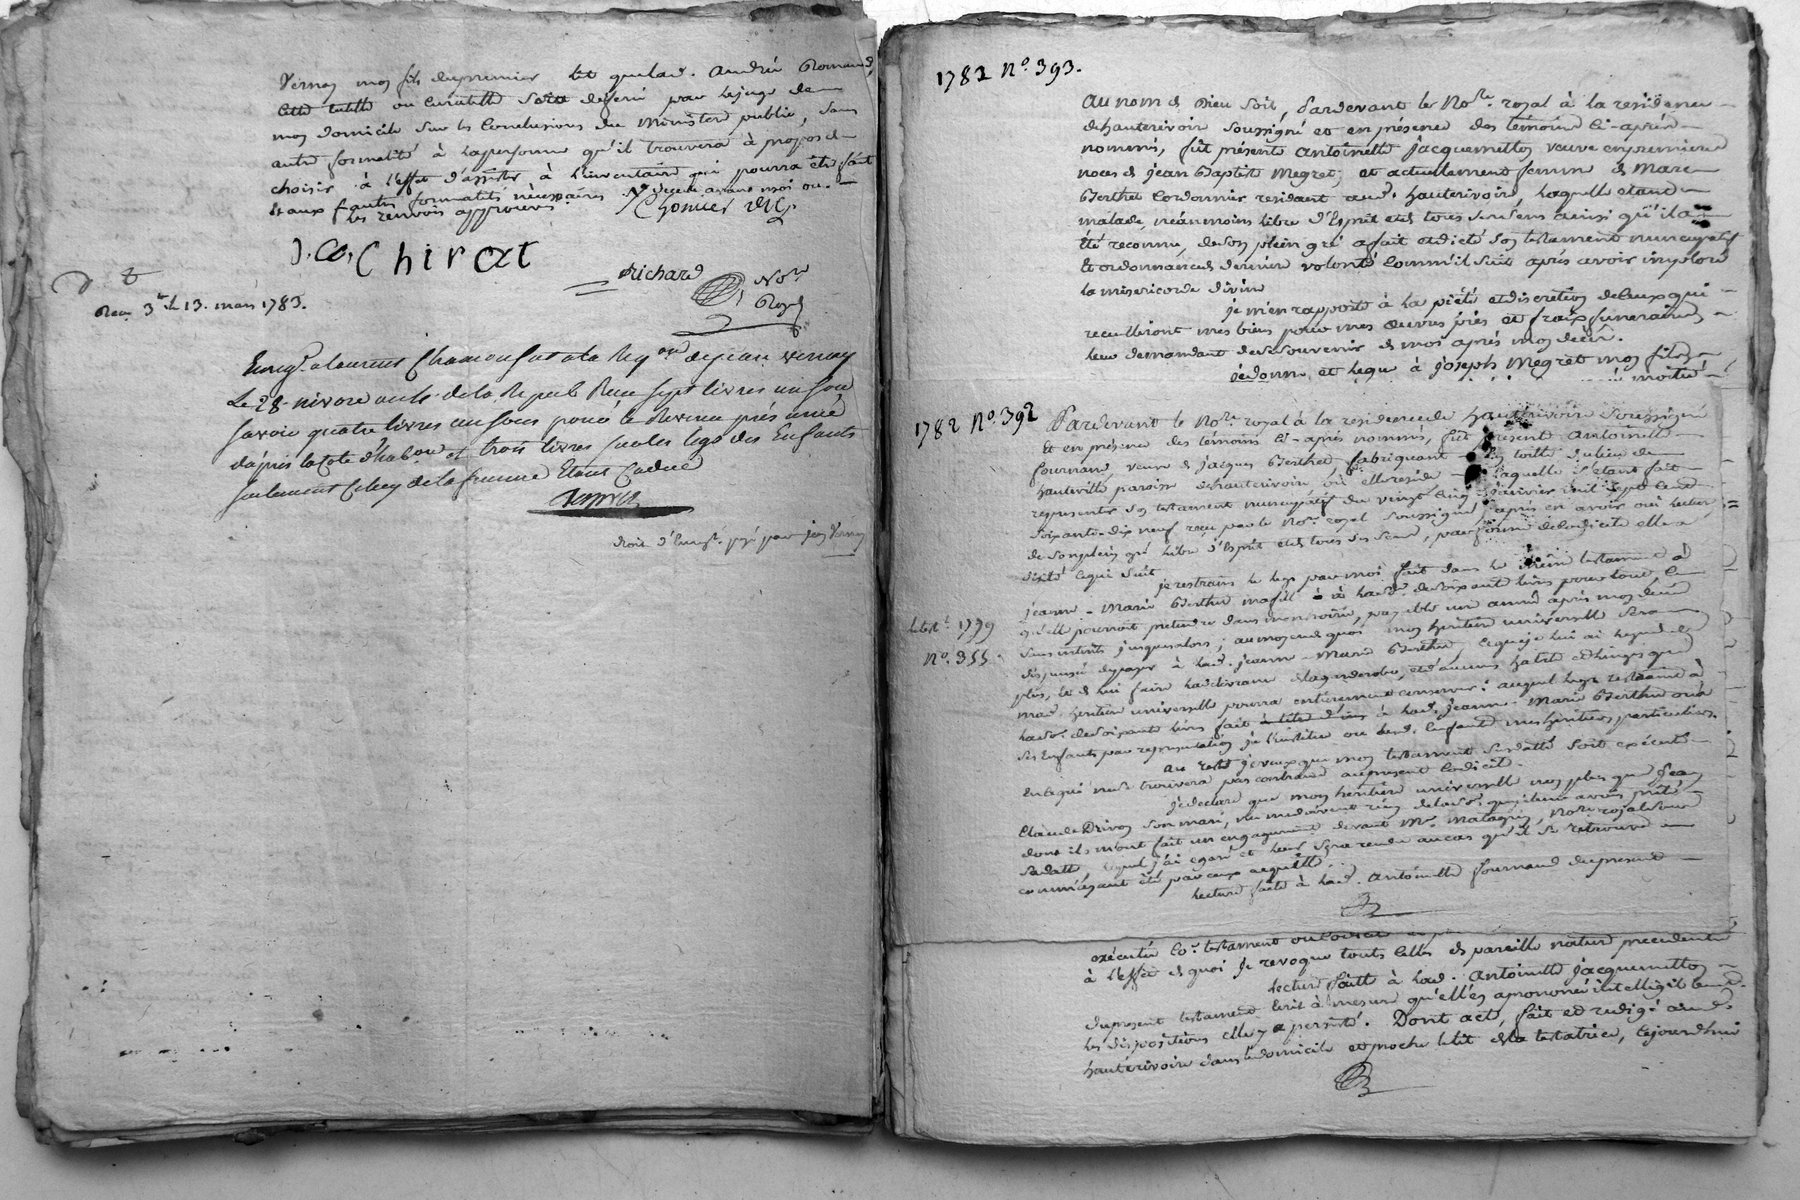 Vernay mon fils du premier lit quela d. André Romand,
cette tutelle ou curatelle sera déféré par le juge de
mon domicile sur les conclusions du Ministere public, sans
autre formalité à la personne qu'il trouvera à propos de
choisir à l'effet d'assister à l'inventaire qui pourra être fait
et aux f autres formalités nécessaires
les renvois approuvés
J. Ca. Chirat
Richard
Nore
Royal
Reçu 3 le 13. mars 1783.
Le 28 nivose an 4 de la Repub Reçu sept livres un sou
savoir quatre livres un sous pour le Revenu présumé
d'après la cote d'hab.on et trois livres pour les legs des Enfants
seulement Celuy de la femme Etant Caduc
droit d'Enregt. payé par jean Vernay
1782 No. 393.
Au nom de Dieu soit, Pardevant le Nore. royal à la residence
de hauterivoire soussigné et en présence des témoins ci-après
nommés, fût présente Antoinette Jacquemetton veuve en premiere
noces de jean Baptiste Megret, et actuellement femme de Marc
Berthet Cordonnier residant aud. hauterivoire, laquelle etant
malade, néanmoins libre d'Esprit et de tous ses sens ainsi qu'il a
été reconnu, de son plein gré a fait et dicté son testament nuncupatif
et ordonnance de derniere volonté comm'il suit après avoir imploré
la misericorde divine
je m'en rapporte à la piété et discretion de ceux qui
recueilliront mes biens pour mes œuvres pies et fraix funeraires
leur demandant de se souvenir de moi après mon decès.
je donne et legue à joseph Megret mon fils
moitié
1782 No. 392
Pardevant le Nore. royal à la residence de hauterivoire soussigné
et en présence des témoins ci-après nommés, fût présente Antoinette
fournand veuve de jacques Berthet, fabriquant toille du lieu de
hauteville paroisse d'hauterivoire où elle réside laquelle s'etant fait
representer son testament nuncupatif du vingt cinq janvier mil sept cent
soixante-dix neuf reçu par le Nore. royal soussigné, après en avoir oui lecture,
de son plein gré libre d'Esprit et de tous ses sens, par forme de codicile elle a
dicté ce qui suit
je restrains le legs par moi fait dans le même testament à
jeanne-Marie Berthet ma fille à la so. de soixante livres pour tout ce
qu'elle pourroit pretendre dans mon hoirie, payable un année après mon decès
sans interêts jusqu'alors; au moyen de quoi mon heritiere universelle sera
dispensée de payer à lad. jeanne-Marie Berthet, ce que je lui ai legué de
plus, et de lui faire la delivrance de la garderobe, et d'aucuns habits et linges que
mad. heritiere universelle pourra entierement conserver: auquel legs restraint à
lad. so. de soixante livres fait à lad. jeanne-Marie Berthet ou à
ses Enfants par representation je l'institue ou lesd. Enfants mes heritiers particuliers.
au reste je veux que mon testament susdatté soit exécuté
en ce qui ne se trouvera pas contraire au present Codicile.
je declare que mon heritiere universelle non plus que jean
Claude Drivon son mari, ne me doivent rien de la so. que je leur avois prêté
dont ils m'ont fait un engagement devant Me. Matagrin, Nore. royal sous
sa datte, lequel j'ai egaré et leur sera rendu au cas qu'il se retrouve
comm'ayant été par eux acquitté.
lecture faite à lad. Antoinette fournand du present
le test. 1779
No. 355.
exécuter co. testament ou codicile
à l'effet de quoi je revoque touts celles de pareille nature precedente
lecture faitte à lad. Antoinette Jacquemetton
du present testament Ecrit à mesure qu'elle en a prononcé intelligiblement
les dispositions elle y a persisté. Dont acte, fait et redigé aud.
hauterivoire dans le domicile et proche le lit de la testatrice, cejourd'hui